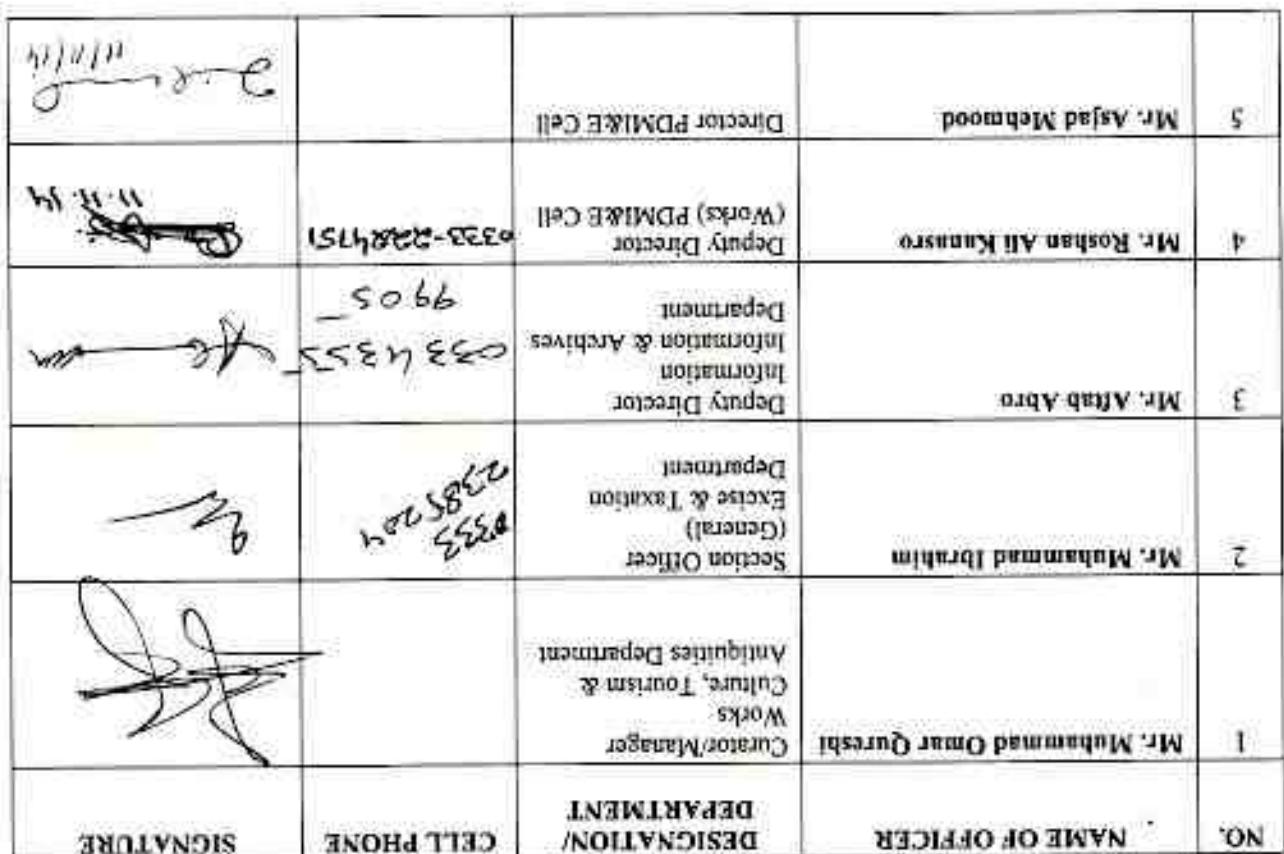 NO.
NAME OF OFFICER
DESIGNATION/
DEPARTMENT
CELL PHONE
SIGNATURE
1
Mr. Muhammad Omar Qureshi
Curator/Manager
Works
Culture, Tourism &
Antiquities Department
2
Mr. Muhammad Ibrahim
Section Officer
(General)
Excise & Taxation
Department
0333
2385204
3
Mr. Aftab Abro
Deputy Director
Information
Information & Archives
Department
0334 4355
9905
4
Mr. Roshan Ali Kanasro
Deputy Director
(Works) PDMI&E Cell
0333-2284751
11.11.14
5
Mr. Asjad Mehmood
Director PDMI&E Cell
11/11/14